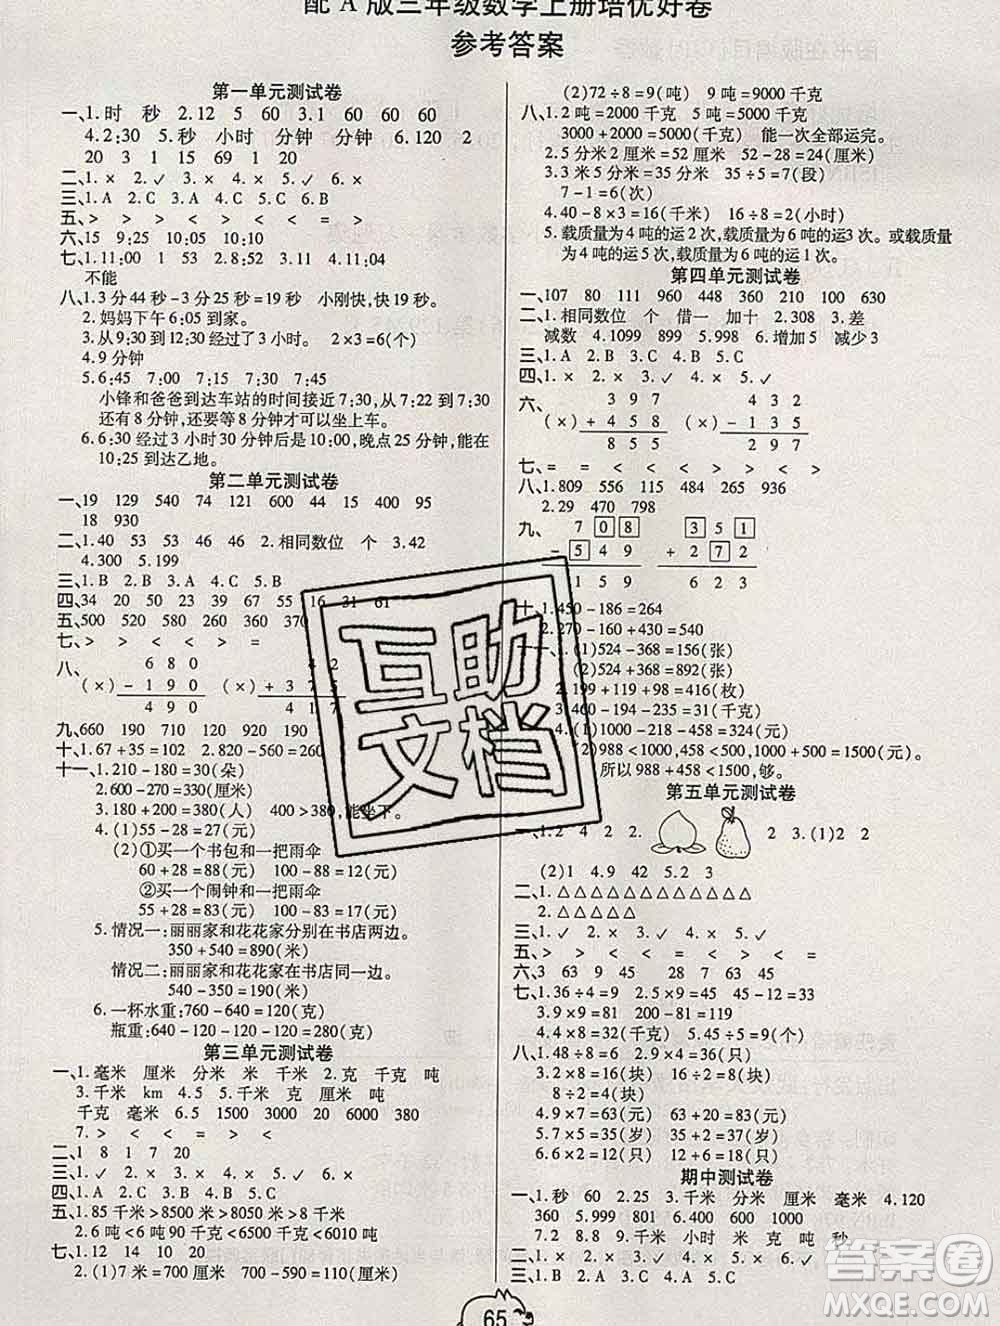 配A版三年级数学上册培优好卷
参考答案
第一单元测试卷
一、1.时 秒 2.12 5 60 3.1 60 60 60
4.2:30 5.秒 小时 分钟 分钟 6.120 2
20 3 1 15 69 1 20
二、1.× 2.✓ 3.× 4.✓ 5.✓ 6.×
三、1.A 2.C 3.A 4.C 5.C 6.B
五、> > > < > < > < >
六、15 9:25 10:05 9:50
七、1.11:00 1 53 10:42 2.8:20 3.12 4.11:04
不能
八、1.3分44秒-3分25秒=19秒 小刚快,快19秒。
2.妈妈下午6:05到家。
3.从9:30到12:30经过了3小时。 2×3=6(个)
4.9分钟
5.6:45 7:00 7:15 7:30
小锋和爸爸到达车站的时间接近6:52,从6:52到7:00
还有8分钟,所以要等8分钟才可以坐上车。
6.6:30经过3小时30分钟后是10:00,晚点25分钟,10:25
到达乙地。
第二单元测试卷
一、19 129 540 74 121 600 44 15 400 95
18 930
二、1.40 53 53 46 46 2.相同数位 个 3.42
4.300 5.199
三、1.B 2.C 3.A 4.C 5.B
四、34 20 50 23 39 67 55 16 31 61
五、500 520 570 300 360 370
七、> > > < < =
八、6 8 0 4 2
(×)-1 9 0 (×)+3 7 5
4 9 0 4 1 7
九、660 190 710 120 920 190
十、1.67+35=102 2.820-560=260
十一、1.210-180=30(朵)
2.600-270=330(厘米)
3.180+200=380(人) 400>380,能坐下。
4.(1)55-28=27(元)
(2)①买一个书包和一把雨伞
60+28=88(元) 100-88=12(元)
②买一个闹钟和一把雨伞
55+28=83(元) 100-83=17(元)
5.情况一:丽丽家和花花家分别在书店两边。
350+540=890(米)
情况二:丽丽家和花花家在书店同一边。
540-350=190(米)
6.一杯水重:760-640=120(克)
瓶重:640-120-120-120=280(克)
第三单元测试卷
一、1.毫米 厘米 分米 米 千米 2.克 千克 吨
3.千米 km 4.5 5.千米 克 厘米 吨
千克 毫米 6.5 1500 3000 2000 6000 380
7.> < > < > <
二、1 8 1 7 20
三、1.✓ 2.× 3.× 4.× 5.× 6.✓
四、1.A 2.C 3.A 4.B 5.C 6.C
五、1.85千米>8500米>8050米>8千米
2.6吨<6吨90千克<6500千克<7吨
七、1.12 14 10 20
2.(1)7米=700厘米 700-590=110(厘米)
(2)72÷8=9(吨) 9吨=9000千克
八、1.2吨=2000千克 5吨=5000千克
3000+2000=5000(千克) 能一次全部运完。
2.5分米2厘米=52厘米 52-28=24(厘米)
3.3米5分米=35分米 35÷5=7(段)
7-1=6(次)
4.40-8×3=16(千米) 16÷8=2(小时)
5.载质量为4吨的运2次,载质量为5吨的运3次。或载质量
为4吨的运7次,载质量为5吨的运1次。
第四单元测试卷
一、107 80 111 960 448 360 210 100 630
二、1.相同数位 个 借一 加十 2.308 3.差
减数 4.1099 899 5.998 6.增加5 减少3
三、1.A 2.B 3.C 4.A 5.B
四、1.× 2.× 3.✓ 4.× 5.✓
六、3 9 7 4 3 2
(×)+4 5 8 (×)-1 3 5
8 5 5 2 9 7
七、> = = < < < < > <
八、1.809 556 115 480 527 936
2.29 470 798
九、7 0 8 3 5 1
-5 4 9 +2 7 2
1 5 9 6 2 3
十、1.450-186=264
2.270-160+430=540
十一、1.(1)524-368=156(张)
(2)524+368=892(张)
2.199+119+98=416(枚)
3.460-194-235=31(千米)
4.(1)1000-218-458=324(元)
(2)988<1000,458<500,1000+500=1500(元)。
所以988+458<1500,够。
第五单元测试卷
一、1.2 4 2 2. 2 3.(1)2 2
(2)1 4.9 42 5.2 3
二、1.△△△△△△△△△△△△
2.△△△△△
三、1.✓ 2.× 3.✓ 4.× 5.✓
五、> > < > = < < = <
六、3 63 9 15 45 28 7 9 42
七、1.3×9=27 27-15=12 2.45-12=33
3.9×9=81 81-9=72
4.4×8=32(千克) 5.45÷5=9(个)
八、1.48÷8=6(只) 48-8=40(只)
2.6×4=24(块) 24-8=16(块)
8÷2=4(块)
4.9×7=63(元) 63+20=83(元)
5.7×5=35(岁) 35-7=28(岁)
6.6×2=12(只) 12+6=18(只)
期中测试卷
一、1.秒 60 2.25 3.千米 分米 厘米 毫米 4.120
360 5.999 6.2000 4 600 4000
7.2 8.8 9.千米 小时 米 克 吨 秒
二、1.× 2.× 3.✓ 4.× 5.✓ 6.✓
三、1.B 2.A 3.C 4.A 5.C
65
互助文档
答案圈
MXQE.COM